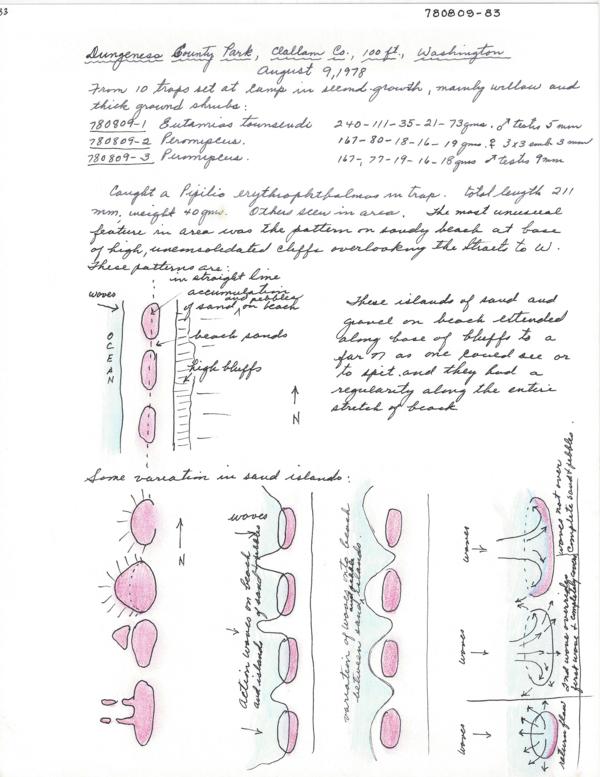 33
780809-83
Dungeness County Park, Clallam Co., 100 ft., Washington
August 9, 1978
From 10 traps set at camp in second growth, mainly willow and
thick ground shrubs:
780809-1 Eutamias townsendi 240-111-35-21-73gms. ♂ testes 5 mm
780809-2 Peromyscus. 167-80-18-16-19gms. ♀ 3x3 emb. 3 mm
780809-3 Peromyscus. 167-77-19-16-18gms ♂ testes 9mm
Caught a Pipilio erythrophthalmus in trap. total length 211
mm, weight 40gms. Others seen in area. The most unusual
feature in area was the pattern on sandy beach at base
of high, unconsolidated cliffs overlooking the Straits to W.
These patterns are:
in straight line
waves
accumulation
of sand and pebbles on beach
beach sands
high bluffs
OCEAN
N
These islands of sand and
gravel on beach extended
along base of bluffs to a
far N as one could see or
to spit and they had a
regularity along the entire
stretch of beach
Some variation in sand islands:
N
waves
Action waves on beach
and islands of sand & pebbles
variation of waves onto beach
between sand and pebble islands.
waves
waves
waves
waves not over
complete sand & pebbles.
2nd wave overrides
first wave & completely covers
return flow